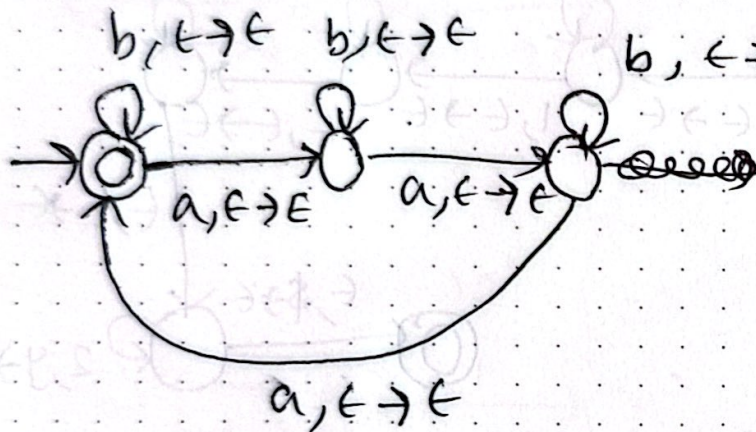 b, ε→ε b, ε→ε b, ε→
a, ε→ε a, ε→ε
a, ε→ε